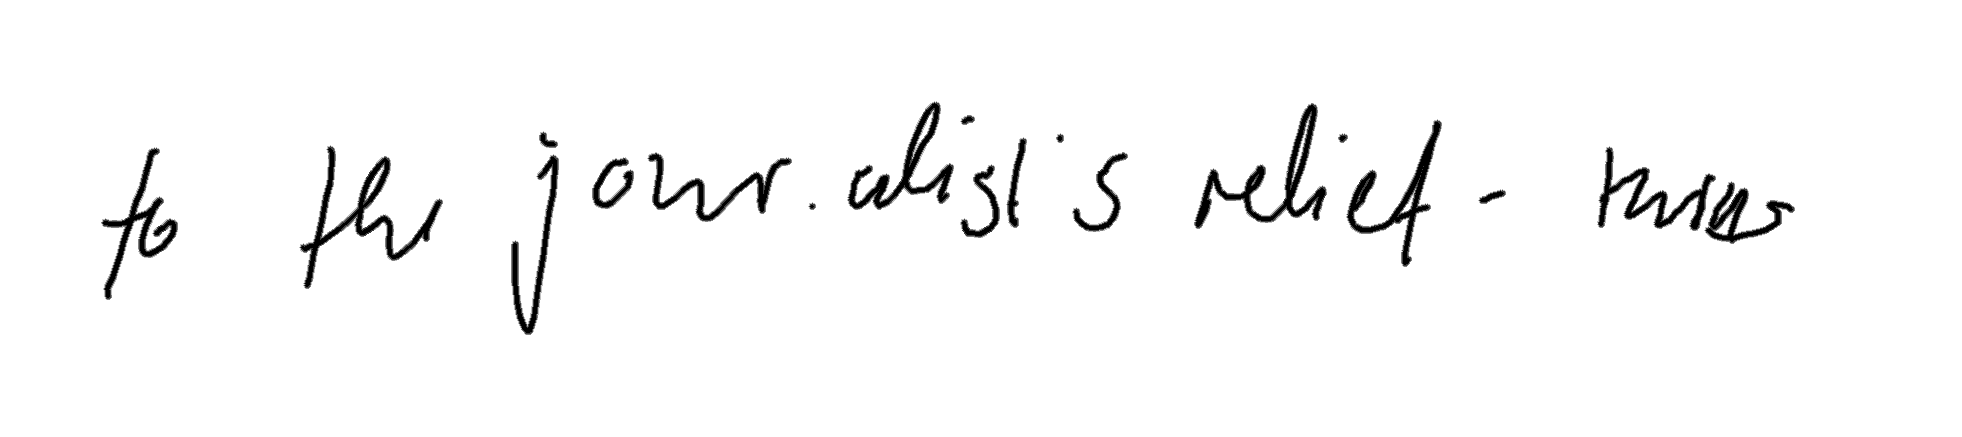 to the journalist's relief - turns